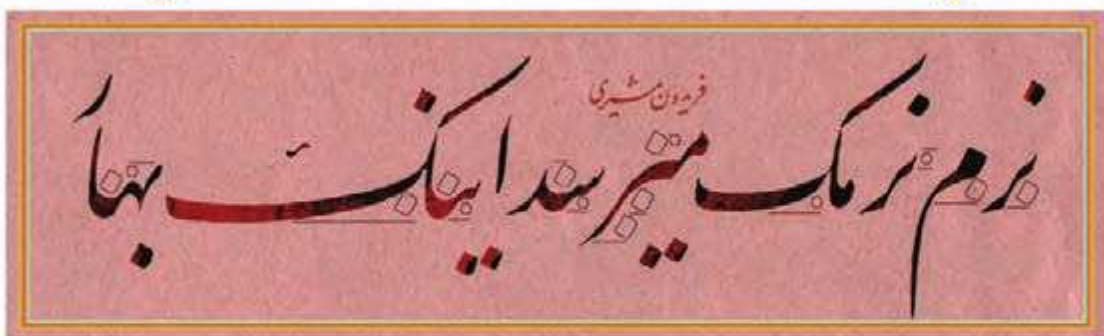 فریدون مشیری
نرم نرمک میرسد اینک بهار